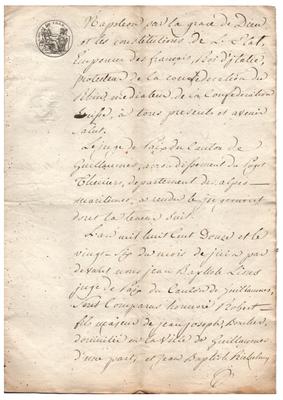 Napoleon par la grace de Dieu
et les constitutions de L'Etat,
Empereur des français, Roi d'italie,
protecteur de la confederation du
Rhin, mediateur de la Confederation
Suisse, à tous presents et avenir
Salut.
Le juge de Paix du Canton de
Guillaumes, arrondissement du Puget
Theniers, departement des alpes-
maritimes, a rendu le jugement
dont la teneur suit.
L'an mil huit Cent Douze et le
vingt-six du mois de juin par
devant nous jean Baptiste
juge de Paix du Canton de guillaumes,
Sont Comparus honnoré Robert
fils majeur de jean joseph,
domicilié en la Ville de Guillaumes
d'une part, et jean Baptiste